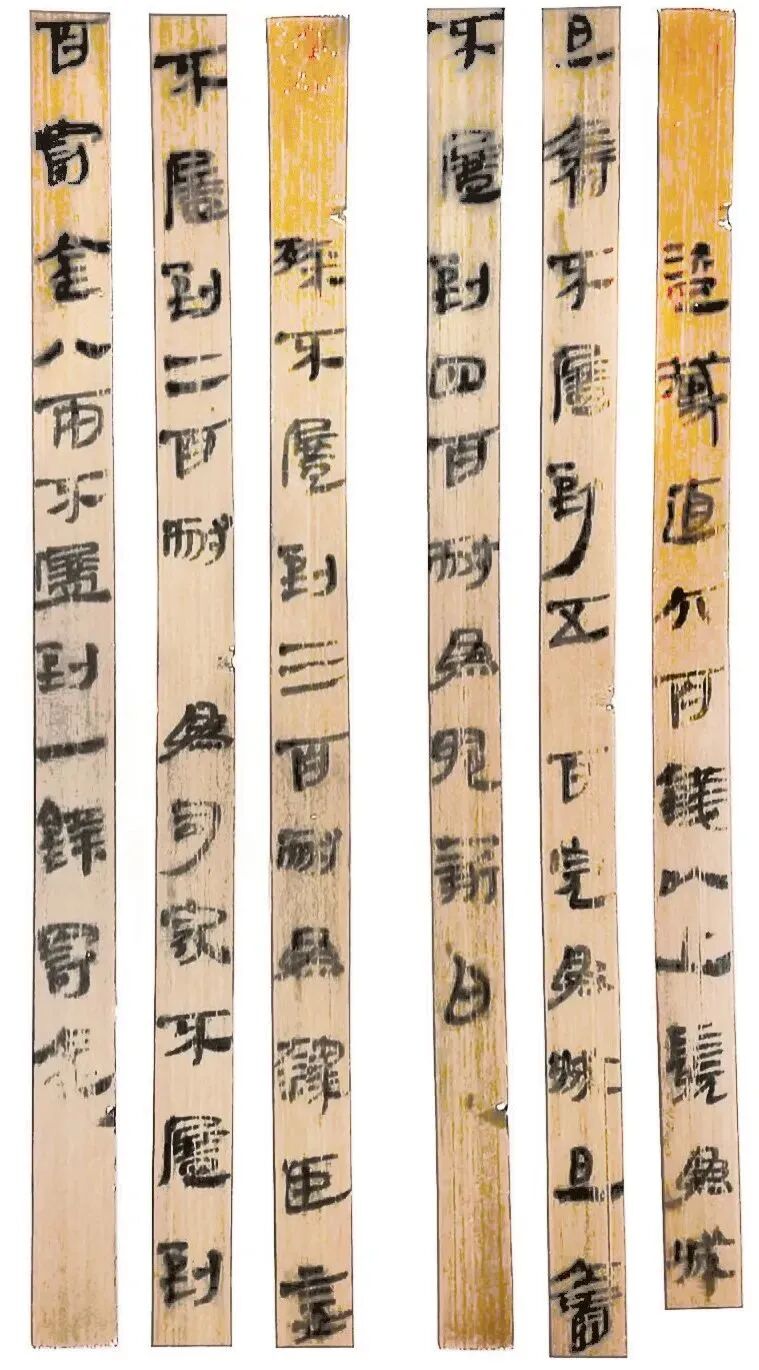 盜臧直六百錢以上髡為城
旦舂不盈到五百完為城旦舂
不盈到四百耐為鬼薪白
粲不盈到三百耐為隸臣妾
不盈到二百耐為司寇不盈到
百罰金八兩不盈到一錢罰金